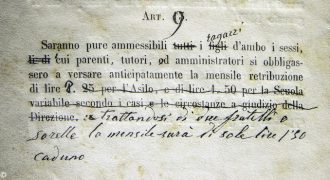 ART. 9.
ragazzi
Saranno pure ammessibili tutti i figli d'ambo i sessi,
li di cui parenti, tutori, od amministratori si obbligas-
sero a versare anticipatamente la mensile retribuzione
di lire 2. 25 per l'Asilo, e di lire 1. 50 per la Scuola
variabile secondo i casi e le circostanze a giudizio della
Direzione. e trattandosi di due fratelli o
sorelle la mensile sarà di sole lire 1'30
caduno